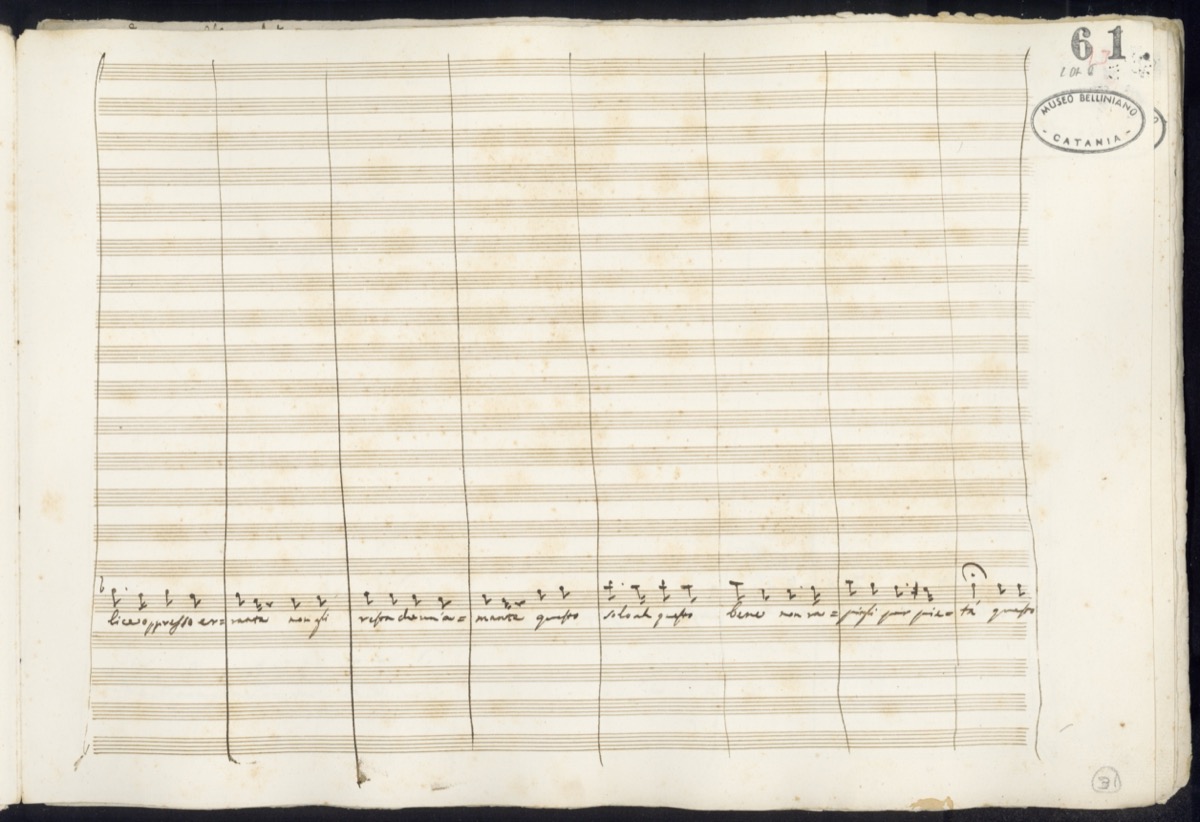 61.
MUSEO BELLINIANO
- CATANIA -
lice oppresso er= rante non gli resta che un'a= mante questo solo ah questo bene non ra= pirgli per pie= tà questo
31